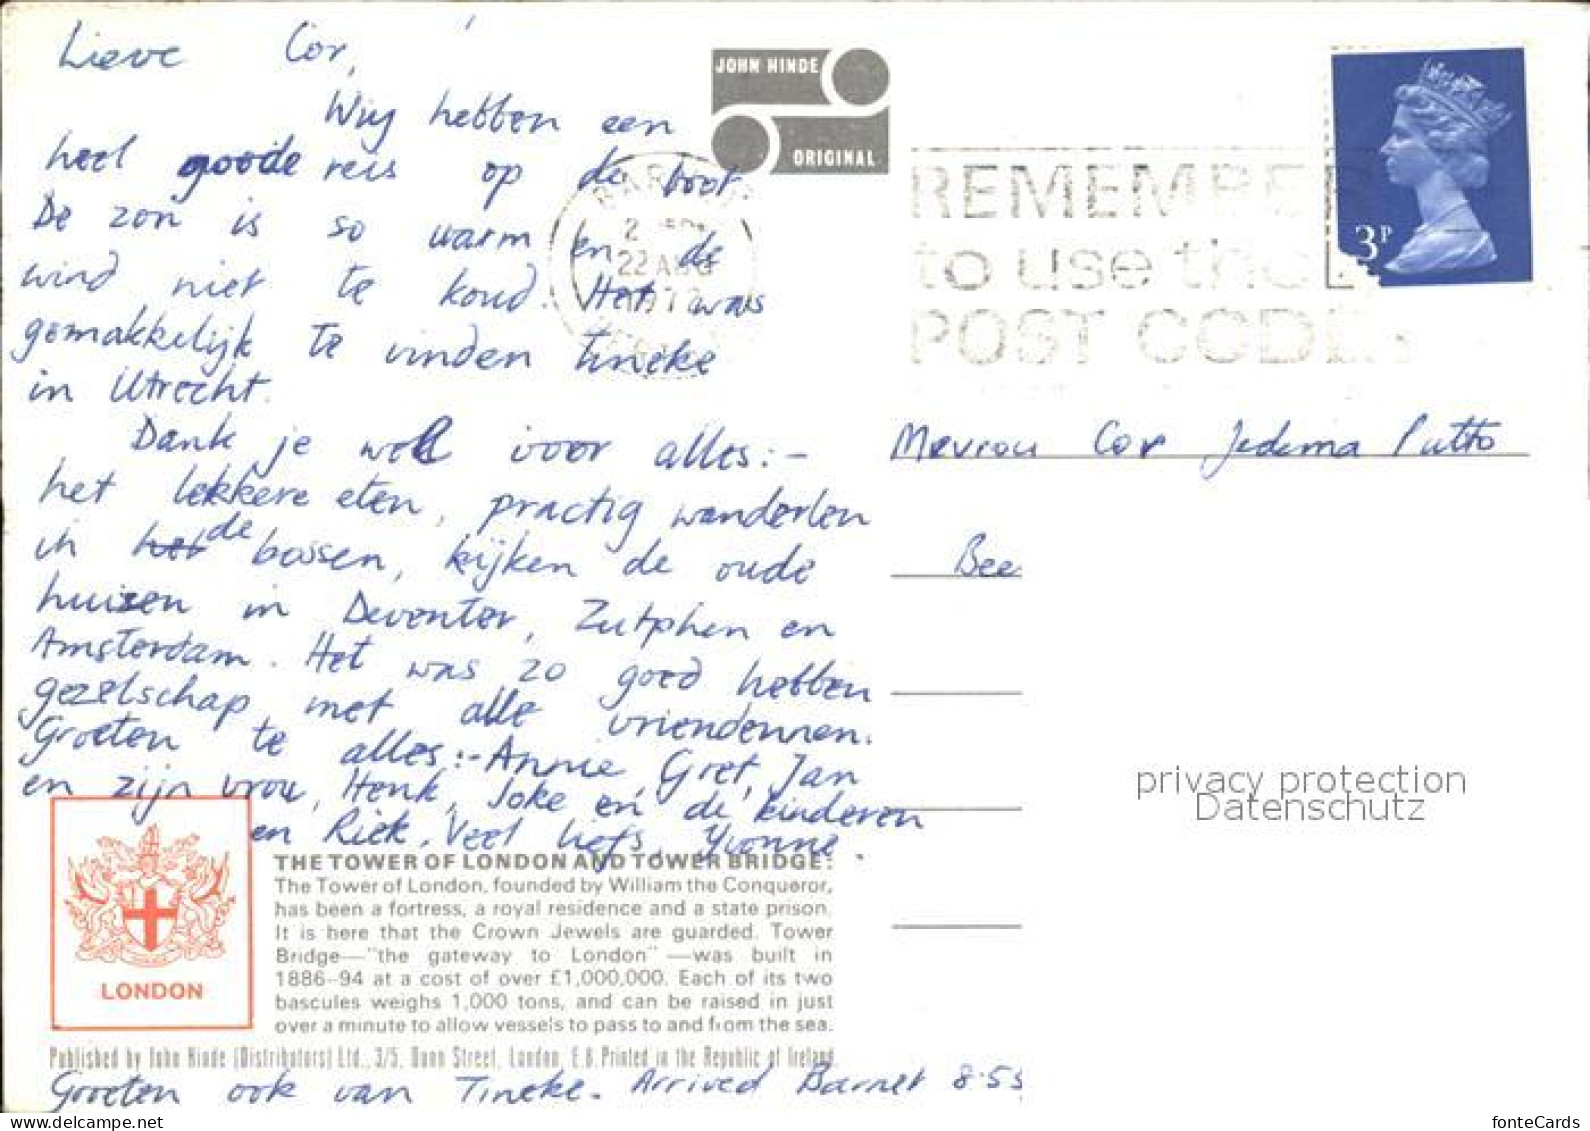 Lieve Cor,
Wij hebben een
heel goode reis op de boot
De zon is so warm en de
wind niet te koud. Het was
gemakkelijk te vinden Tineke
in Utrecht.
Dank je wel voor alles:-
het lekkere eten, practig wanderlen
in het de bossen, kijken de oude
huizen in Deventer, Zutphen en
Amsterdam. Het was zo goed hebben
gezelschap met alle vriendennen.
Groeten te alles:- Annie, Gret, Jan
en zijn vrou, Henk, Joke en de kinderen
en Riek. Veel liefs, Yvonne.
JOHN HINDE
ORIGINAL
22 AUG
REMEMBER
to use the
POST CODE
3P
Mevrou Cor Jedema Putto
Bee
privacy protection
Datenschutz
LONDON
THE TOWER OF LONDON AND TOWER BRIDGE:
The Tower of London, founded by William the Conqueror,
has been a fortress, a royal residence and a state prison.
It is here that the Crown Jewels are guarded. Tower
Bridge—"the gateway to London"—was built in
1886-94 at a cost of over £1,000,000. Each of its two
bascules weighs 1,000 tons, and can be raised in just
over a minute to allow vessels to pass to and from the sea.
Published by John Hinde (Distributors) Ltd., 3/5, Dunn Street, London, E.8. Printed in the Republic of Ireland
Groeten ook van Tineke. Arrived Barnet 8.55
fonteCards